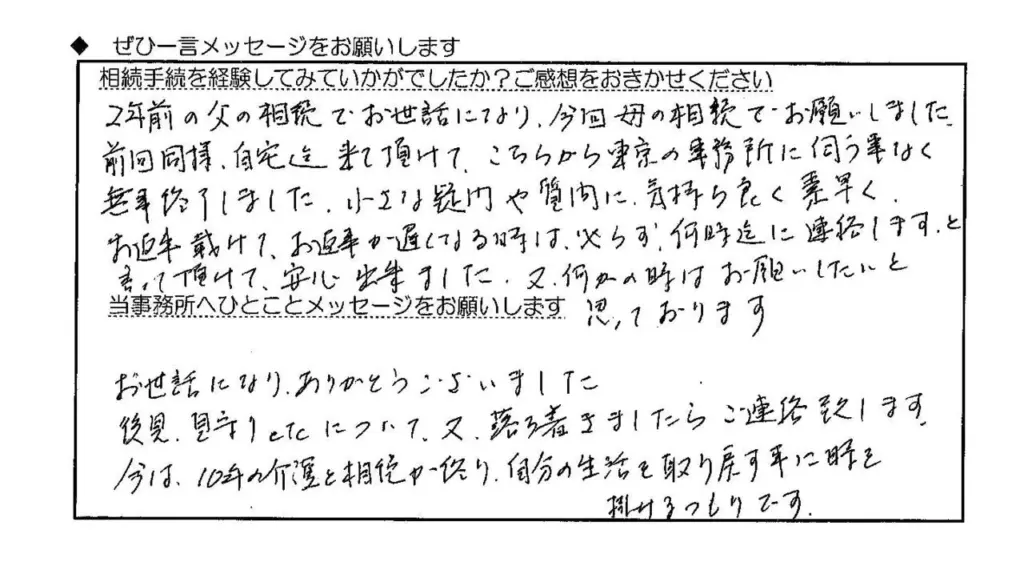 ◆ ぜひ一言メッセージをお願いします
相続手続を経験してみていかがでしたか?ご感想をおきかせください
2年前の父の相続でお世話になり、今回母の相続でお願いしました。
前回同様、自宅迄来て頂けて、こちらから東京の事務所に伺う事なく
無事終了しました。小さな疑問や質問に、気持ち良く素早く、
お返事戴けて、お返事が遅くなる時は、必らず、何時迄に連絡します、と
言って頂けて、安心出来ました。又何かの時はお願いしたいと
思っております
当事務所へひとことメッセージをお願いします
お世話になり、ありがとうございました
後見、見守りetcについて、又、落ち着きましたらご連絡致します。
今は、10年の介護と相続が終り、自分の生活を取り戻す事に時を
掛けるつもりです。